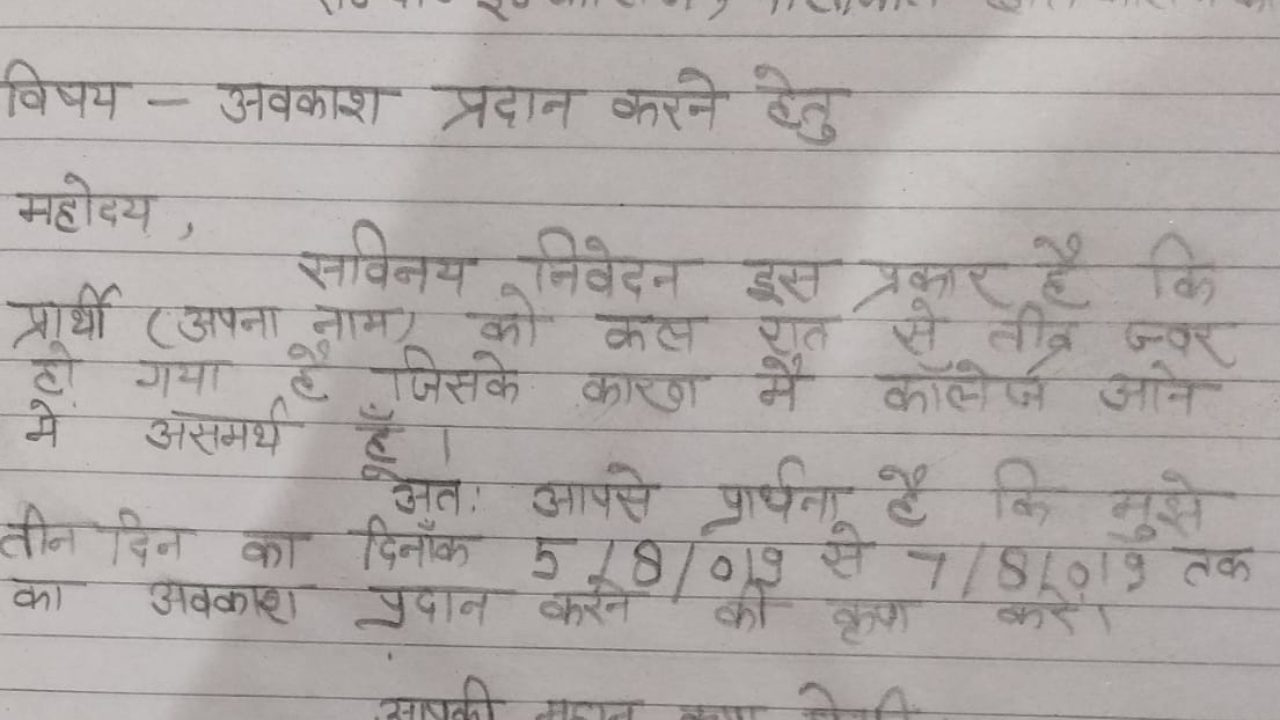 विषय - अवकाश प्रदान करने हेतु
महोदय,
सविनय निवेदन इस प्रकार है कि
प्रार्थी (अपना नाम) को कल रात से तीव्र ज्वर
हो गया है जिसके कारण मैं कॉलेज आने
मे असमर्थ हूँ ।
अतः आपसे प्रार्थना है कि मुझे
तीन दिन का दिनाँक 5/8/019 से 7/8/019 तक
का अवकाश प्रदान करने की कृपा करें।
आपकी महान कृपा होगी